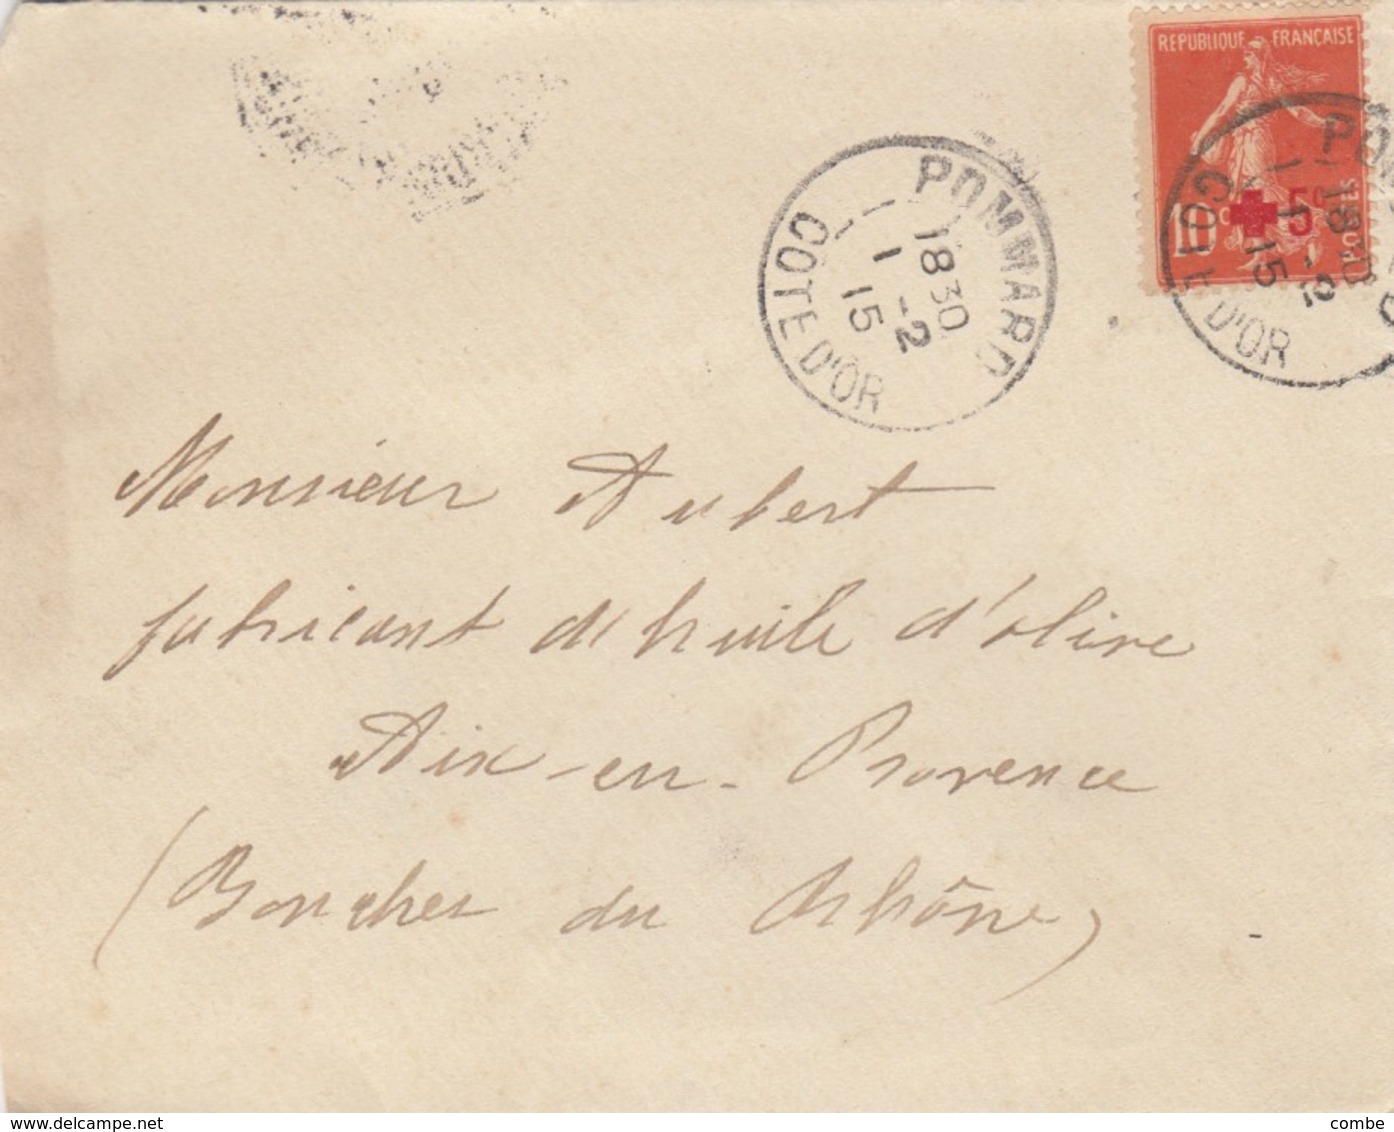 REPUBLIQUE FRANÇAISE
10c
5c
POSTES
POMMARD
18 30
1 - 2
15
COTE D'OR
18 30
1 - 2
15
COTE D'OR
Monsieur Aubert
fabricant d'huile d'olive
Aix-en-Provence
(Bouches du Rhône)
www.delcampe.net
combe